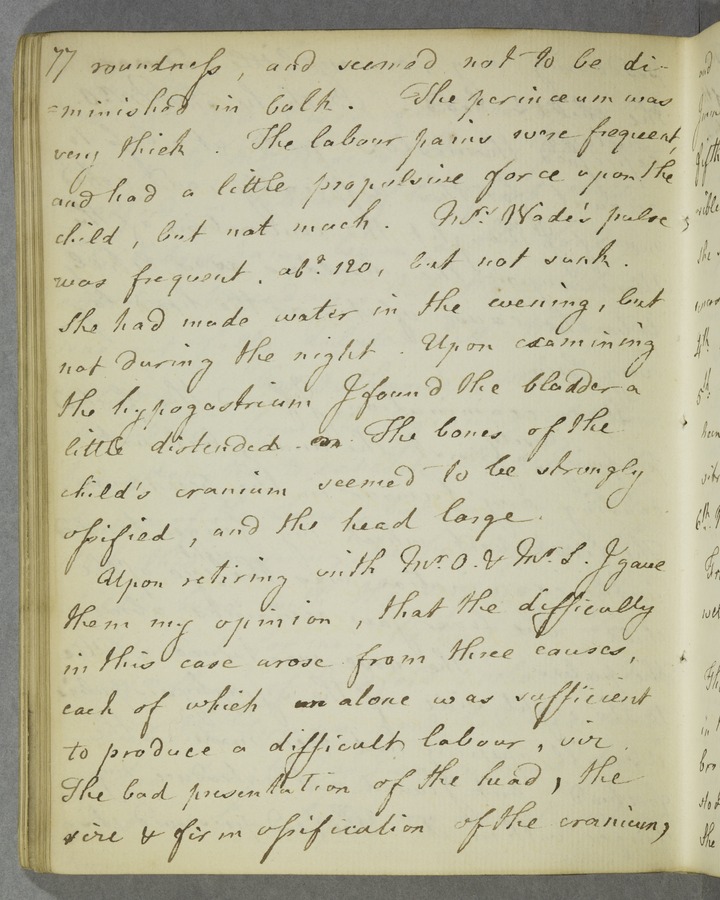 77 roundness, and seemed not to be di-
=minished in bulk. The perinæum was
very thick. The labour pains were frequent,
and had a little propulsive force upon the
child, but not much. Mrs. Wade's pulse
was frequent, abt. 120, but not sunk.
She had made water in the evening, but
not during the night. Upon examining
the hypogastrium I found the bladder a
little distended. The bones of the
child's cranium seemed to be strongly
ossified, and the head large.
Upon retiring with Mr. O. & Mr. S. I gave
them my opinion, that the difficulty
in this case arose from three causes,
each of which alone was sufficient
to produce a difficult labour, viz.
The bad presentation of the head, the
size & firm ossification of the cranium,